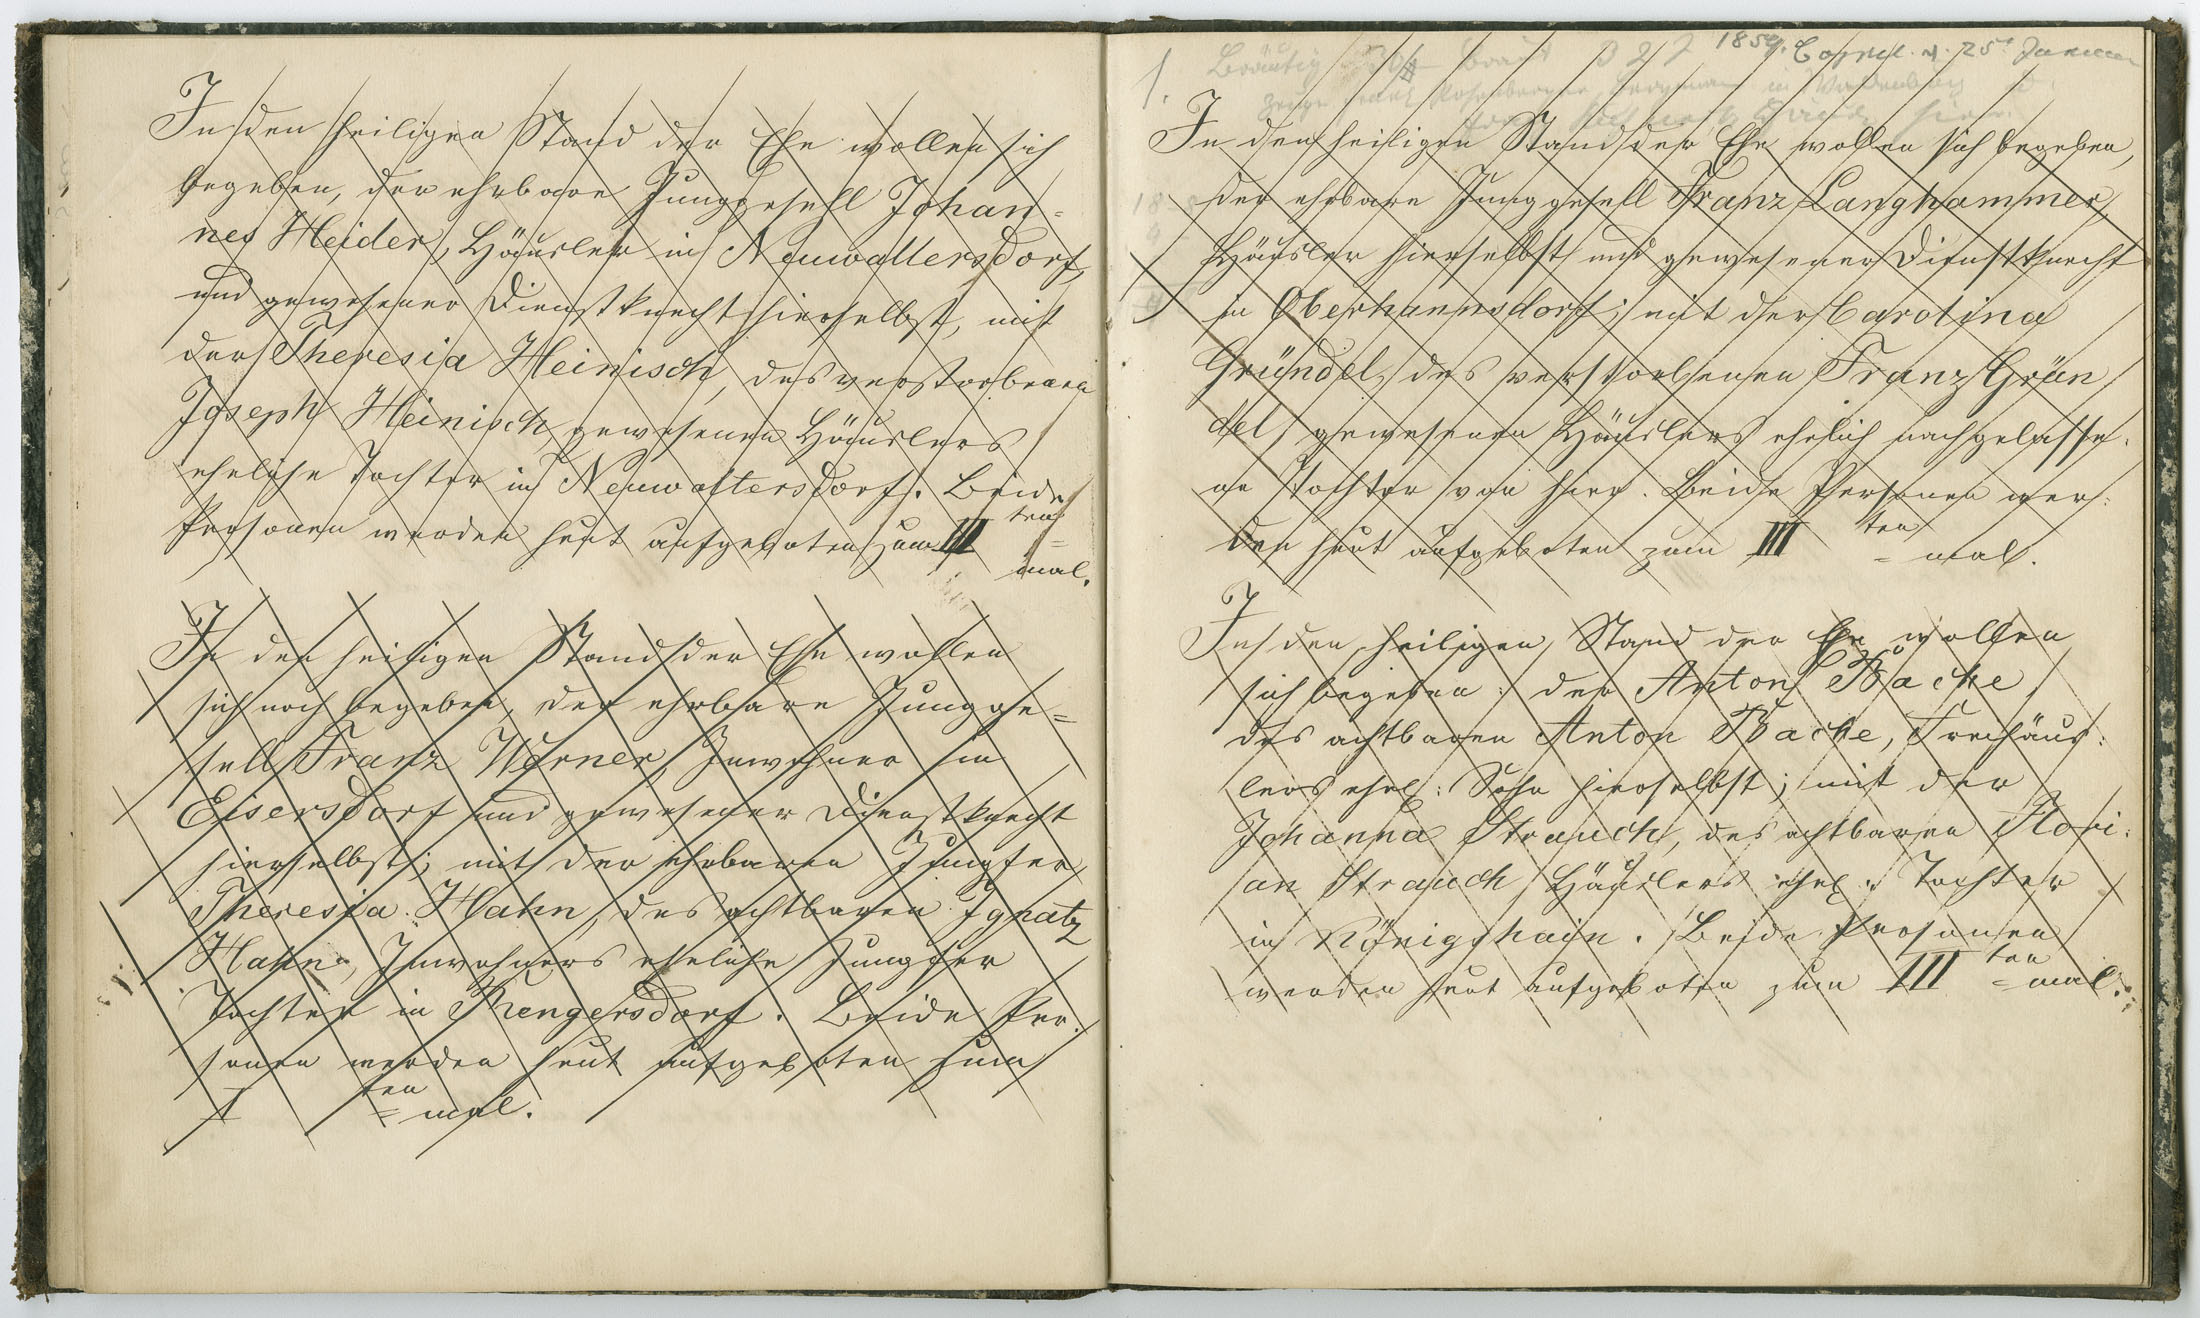 In den heiligen Stand der Ehe wollen sich
begeben, der ehrbare Junggesell Johan-
nes Heider, Häusler in Neuwaltersdorf,
und gewesener Dienstknecht hierselbst, mit
der Theresia Heinisch, des verstorbenen
Joseph Heinisch gewesenen Häuslers
eheliche Tochter in Neuwaltersdorf. Beide
Personen werden heut aufgeboten zum III ten=
mal.
In den heiligen Stand der Ehe wollen
sich noch begeben, der ehrbare Jungge=
sell Franz Werner, Inwohner in
Eisersdorf und gewesener Dienstknecht
hierselbst; mit der ehrbaren Jungfer
Theresia Hahn, des achtbaren Ignatz
Hahn, Inwohners eheliche Jungfer
Tochter in Rengersdorf. Beide Per-
sonen werden heut aufgeboten zum
I ten= mal.
1. Bräutig Braut 1859. 25t Januar
in
In den heiligen Stand der Ehe wollen sich begeben,
der ehrbare Junggesell Franz Langhammer,
Häusler hierselbst und gewesener Dienstknecht
in Oberhannsdorf; mit der Carolina
Gründel, des verstorbenen Franz Grün
del, gewesenen Häuslers ehelich nachgelasse-
ne Tochter von hier. Beide Personen wer:
den heut aufgeboten zum III ten= mal.
In den heiligen Stand der Ehe wollen
sich begeben: der Anton Bache
des achtbaren Anton Bache, Freihäus:
lers ehel: Sohn hierselbst; mit der
Johanna Strauch, des achtbaren Flori:
an Strauch Häuslers ehel: Tochter
in Königshain. Beide Personen
werden heut aufgeboten zum III ten= mal.